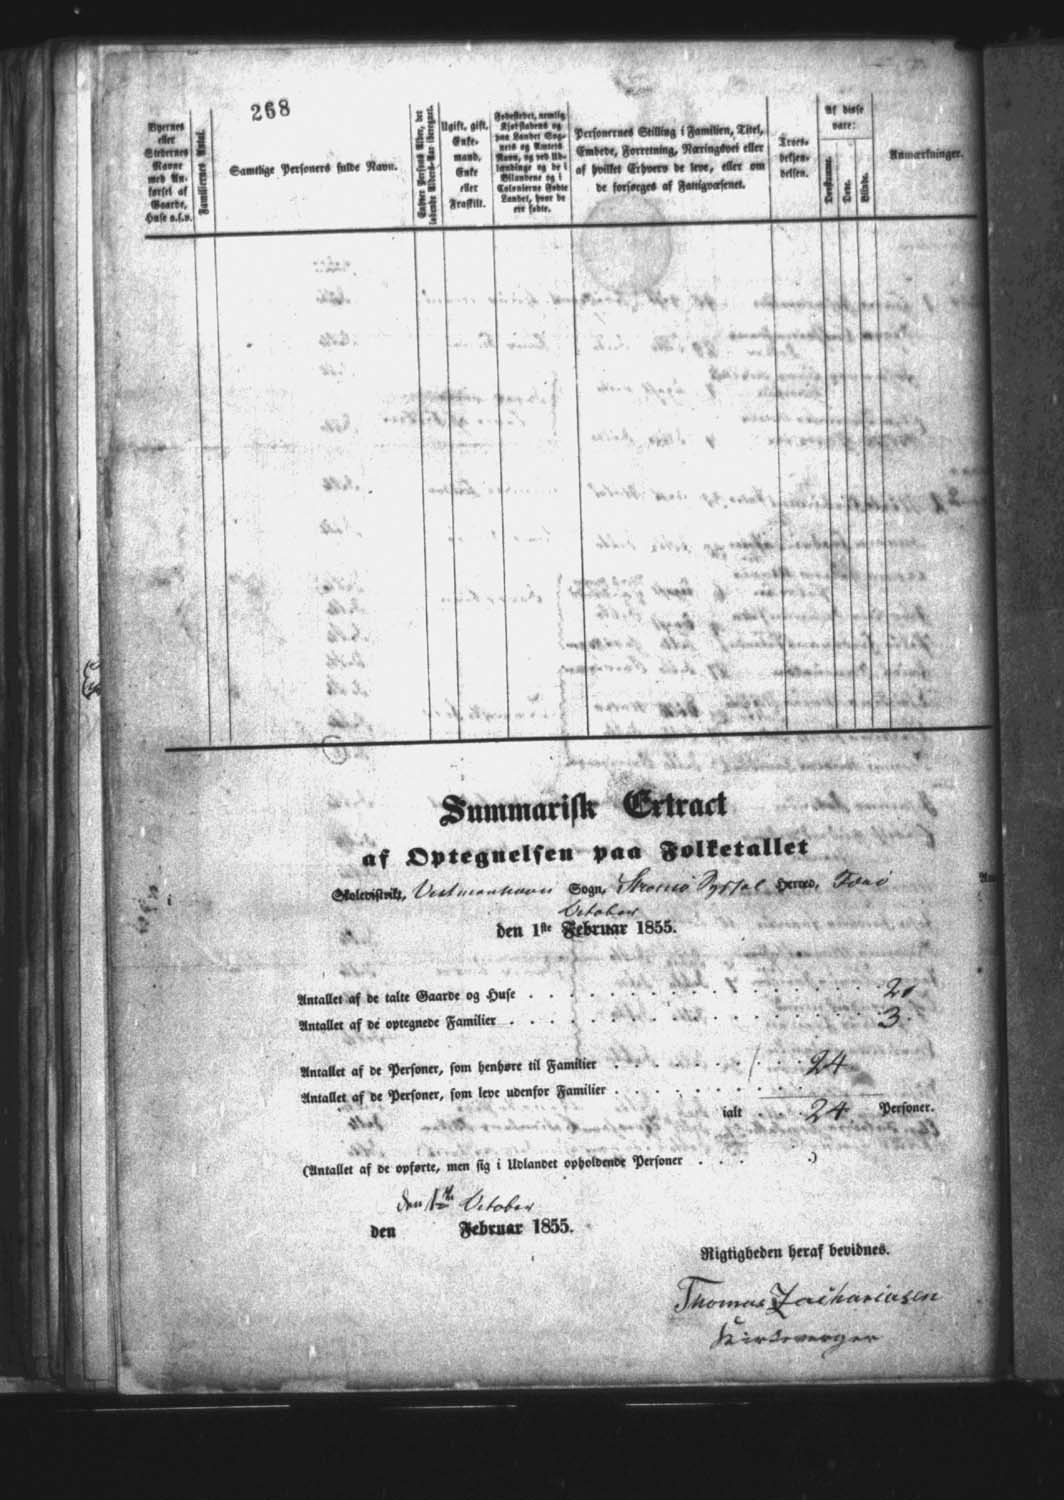 268
Byernes
eller
Stedernes
Navne
med An-
førsel af
Gaarde,
Huse o.s.v.
Familiernes Antal.
Samtlige Personers fulde Navn.
Enhver Persons Alder, det
løbende Alders-Aar iberegnet.
Ugift, gift,
Enke-
mand,
Enke
eller
Fraskilt.
Fødestedet, nemlig
Kjøbstadens og
paa Landet Sog-
nets og Amtets
Navn, og ved Ud-
lændinge og de i
Bilandene og i
Colonierne Fødte
Landet, hvor de
ere fødte.
Personernes Stilling i Familien, Titel,
Embede, Forretning, Næringsvei eller
af hvilket Erhverv de leve, eller om
de forsørges af Fattigvæsenet.
Troes-
bekjen-
delsen.
Af disse
vare:
Døvstumme.
Døve.
Blinde.
Anmærkninger.
Summarisk Extract
af Optegnelsen paa Folketallet
Skoledistrikt, Vestmanhavn Sogn, Strømø Syssel Herred, Færø
October
den 1ste Februar 1855.
Antallet af de talte Gaarde og Huse . . . 2
Antallet af de optegnede Familier . . . 3.
Antallet af de Personer, som henhøre til Familier . . . 24
Antallet af de Personer, som leve udenfor Familier . . .
ialt . . 24 Personer.
(Antallet af de opførte, men sig i Udlandet opholdende Personer . . . )
den 1ste October
den Februar 1855.
Rigtigheden heraf bevidnes.
Thomas Zachariasen
Kirkeværger